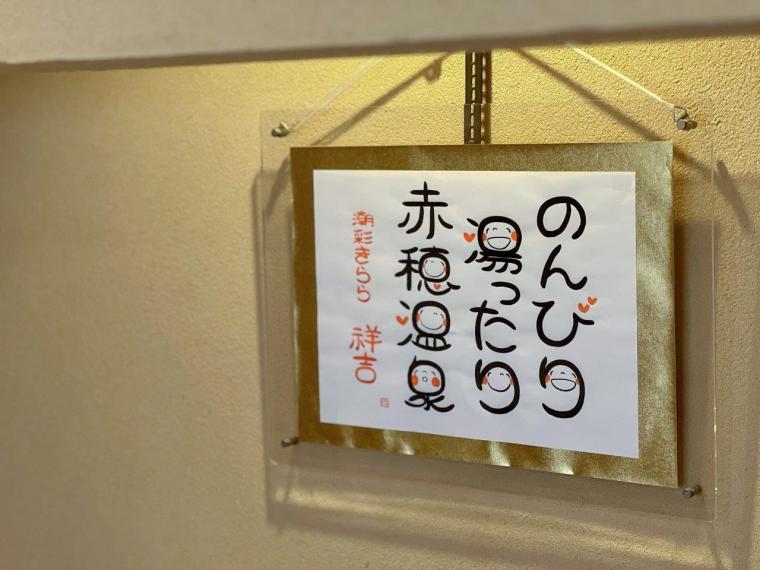 のんびり
湯ったり
赤穂温泉
潮彩きらら 祥吉